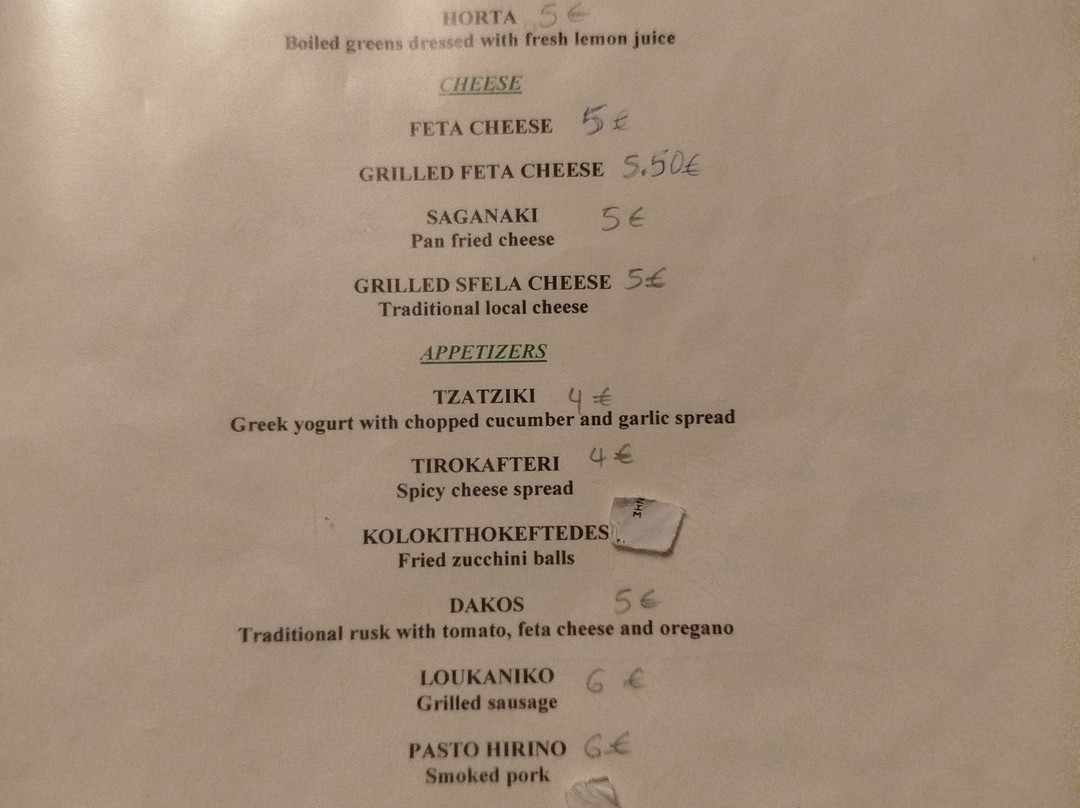 HORTA 5 €
Boiled greens dressed with fresh lemon juice
CHEESE
FETA CHEESE 5 €
GRILLED FETA CHEESE 5.50€
SAGANAKI 5 €
Pan fried cheese
GRILLED SFELA CHEESE 5€
Traditional local cheese
APPETIZERS
TZATZIKI 4 €
Greek yogurt with chopped cucumber and garlic spread
TIROKAFTERI 4 €
Spicy cheese spread
KOLOKITHOKEFTEDES
Fried zucchini balls
DAKOS 5 €
Traditional rusk with tomato, feta cheese and oregano
LOUKANIKO 6 €
Grilled sausage
PASTO HIRINO 6 €
Smoked pork